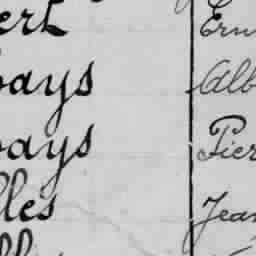 ert Ern
bays Alb
bays Pier
lles Jean